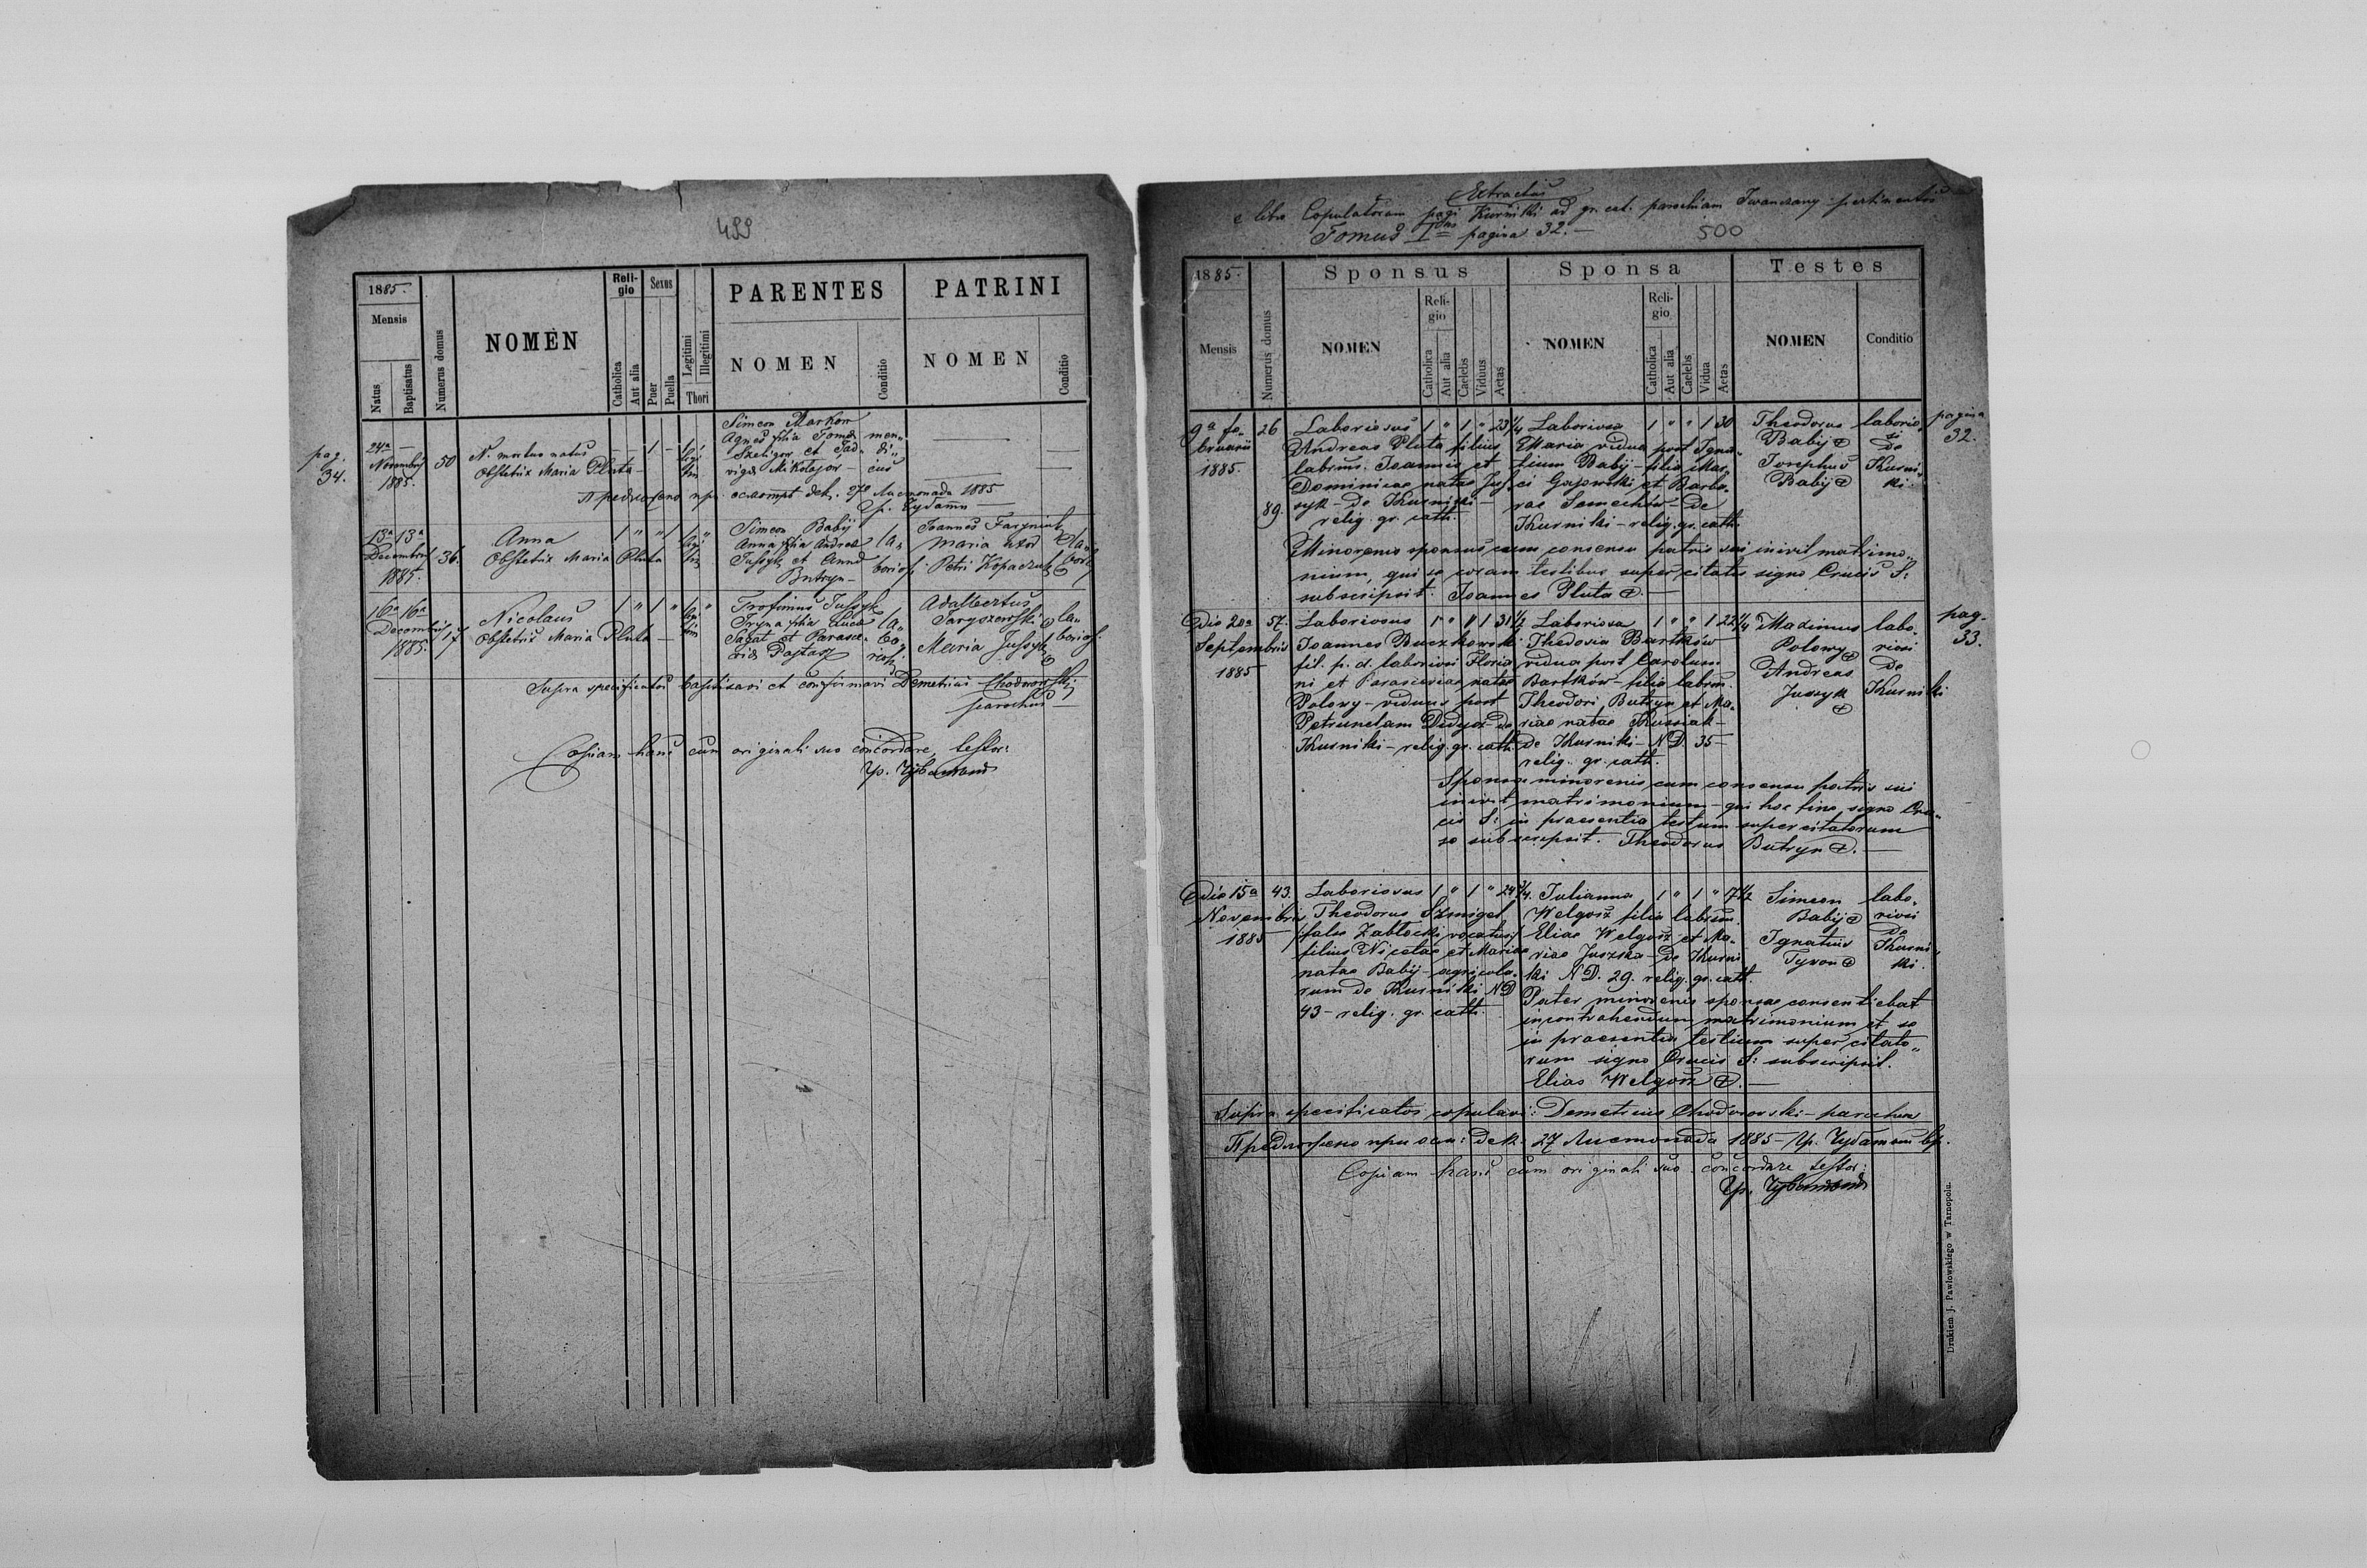 499
1885.
Mensis
Natus
Baptisatus
Numerus domus
NOMEN
Reli-
gio
Catholica
Aut alia
Sexus
Puer
Puella
Legitimi
Illegitimi
Thori
PARENTES
NOMEN
Conditio
PATRINI
NOMEN
Conditio
pag.
34.
24a —
Novembris
1885.
50
N. mortuo natus
Obstetrix Maria Pluta
1
Simeon Markow
Agnes filia Tomae
Szeliger et Jad-
viga Mikołajow
men-
di-
cus
27 Листопада 1885
13a 13a
Decembris
1885.
36.
Anna
Obstetrix Maria Pluta
Simeon Babij
Anna filia Andreae
Jussyk et Anna
Butryn
la-
boriosi
Joannes
Maria uxor
Petri Kopaczuk
16a 16a
Decembris
1885.
17
Nicolaus
Obstetrix Maria Pluta
Trofimus Jussyk
Iryna filia Lucae
Sagat et Parasce-
via
la-
bo-
riosi
Adalbertus
Jaryszewski
Maria Jussyk
la-
boriosi
Supra specificatos baptisavi et confirmavi Demetrius Chodorowski
parochus
Copiam hanc cum originali suo concordare testor:
Extractus
e libro Copulatorum pagi Kurniki ad gr. cat. parochiam Iwanczany pertinentis
Tomus I pagina 32. —
500
1885.
Mensis
Numerus domus
Sponsus
NOMEN
Reli-
gio
Catholica
Aut alia
Caelebs
Viduus
Aetas
Sponsa
NOMEN
Reli-
gio
Catholica
Aut alia
Caelebs
Vidua
Aetas
Testes
NOMEN
Conditio
pagina
32.
9a fe-
bruarii
1885.
26
89.
Laboriosus 1 " 1 " 23 1/4
Andreas Pluta filius
labrius. Joannis et
Dominicae natae Jus-
syk – de Kurniki –
relig. gr. cath.
Laboriosa 1 " " 1 30
Maria vidua post Igna-
tium Babij – filia Mar-
ci Gajowski et Barba-
rae Semechów – de
Kurniki – relig. gr. cath.
Theodorus
Babij
Josephus
Babij
laborio-
si
de
Kurni-
ki
Minorenis sponsus cum consensu patris sui inivit matrimo-
nium, qui se coram testibus super citatis signo Crucis S:
subscripsit. Joannes Pluta
pag.
33.
Die 20a
Septembris
1885
57.
Laboriosus 1 " " 1 31 1/2
Joannes Buczkowski
fil. p. d. laboriosi Floria-
ni et Parasceviae natae
Polowy – viduus post
Petrunelam Didyos de
Kurniki – relig. gr. cath.
Laboriosa 1 " " 1 22 1/4
Thedosia Bartków
vidua post Carolum
Bartków – filia labrius.
Theodori Butryn et Ma-
riae natae Krussiak –
de Kurniki – ND. 35 –
relig. gr. cath.
Maximus
Polowy
Andreas
Jussyk
labo-
riosi
de
Kurniki
Sponsa minorenis cum consensu patris sui
inivit matrimonium – qui hoc fine signo Cru-
cis S: in praesentia testium super citatorum
se subscripsit. Theodorus Butryn
Die 15a
Novembris
1885
43.
Laboriosus 1 " 1 " 24 3/4.
Theodorus Szmigel
false Zabłocki vocatus
filius Nicetae et Mariae
natae Babij – agricola-
rum de Kurniki ND
43 – relig. gr. cath.
Julianna 1 " 1 " 17 1/2
Welgosz filia labrius.
Eliae Welgosz et Ma-
riae Juszka – de Kurni-
ki ND. 29. relig. gr. cath.
Simeon
Babij
Ignatius
Tyron
labo-
riosi
de
Kurni-
ki.
Pater minorenis sponsae consentiebat
in contrahendum matrimonium et se
in praesentia testium super citato-
rum signo Crucis S: subscripsit.
Elias Welgosz
Supra specificatos copulavi: Demetrius Chodorowski – parochus
Предложено при дек. 27 Листопада 1885
Copiam hanc cum originali suo concordare testor:
Drukiem J. Pawłowskiego w Tarnopolu.